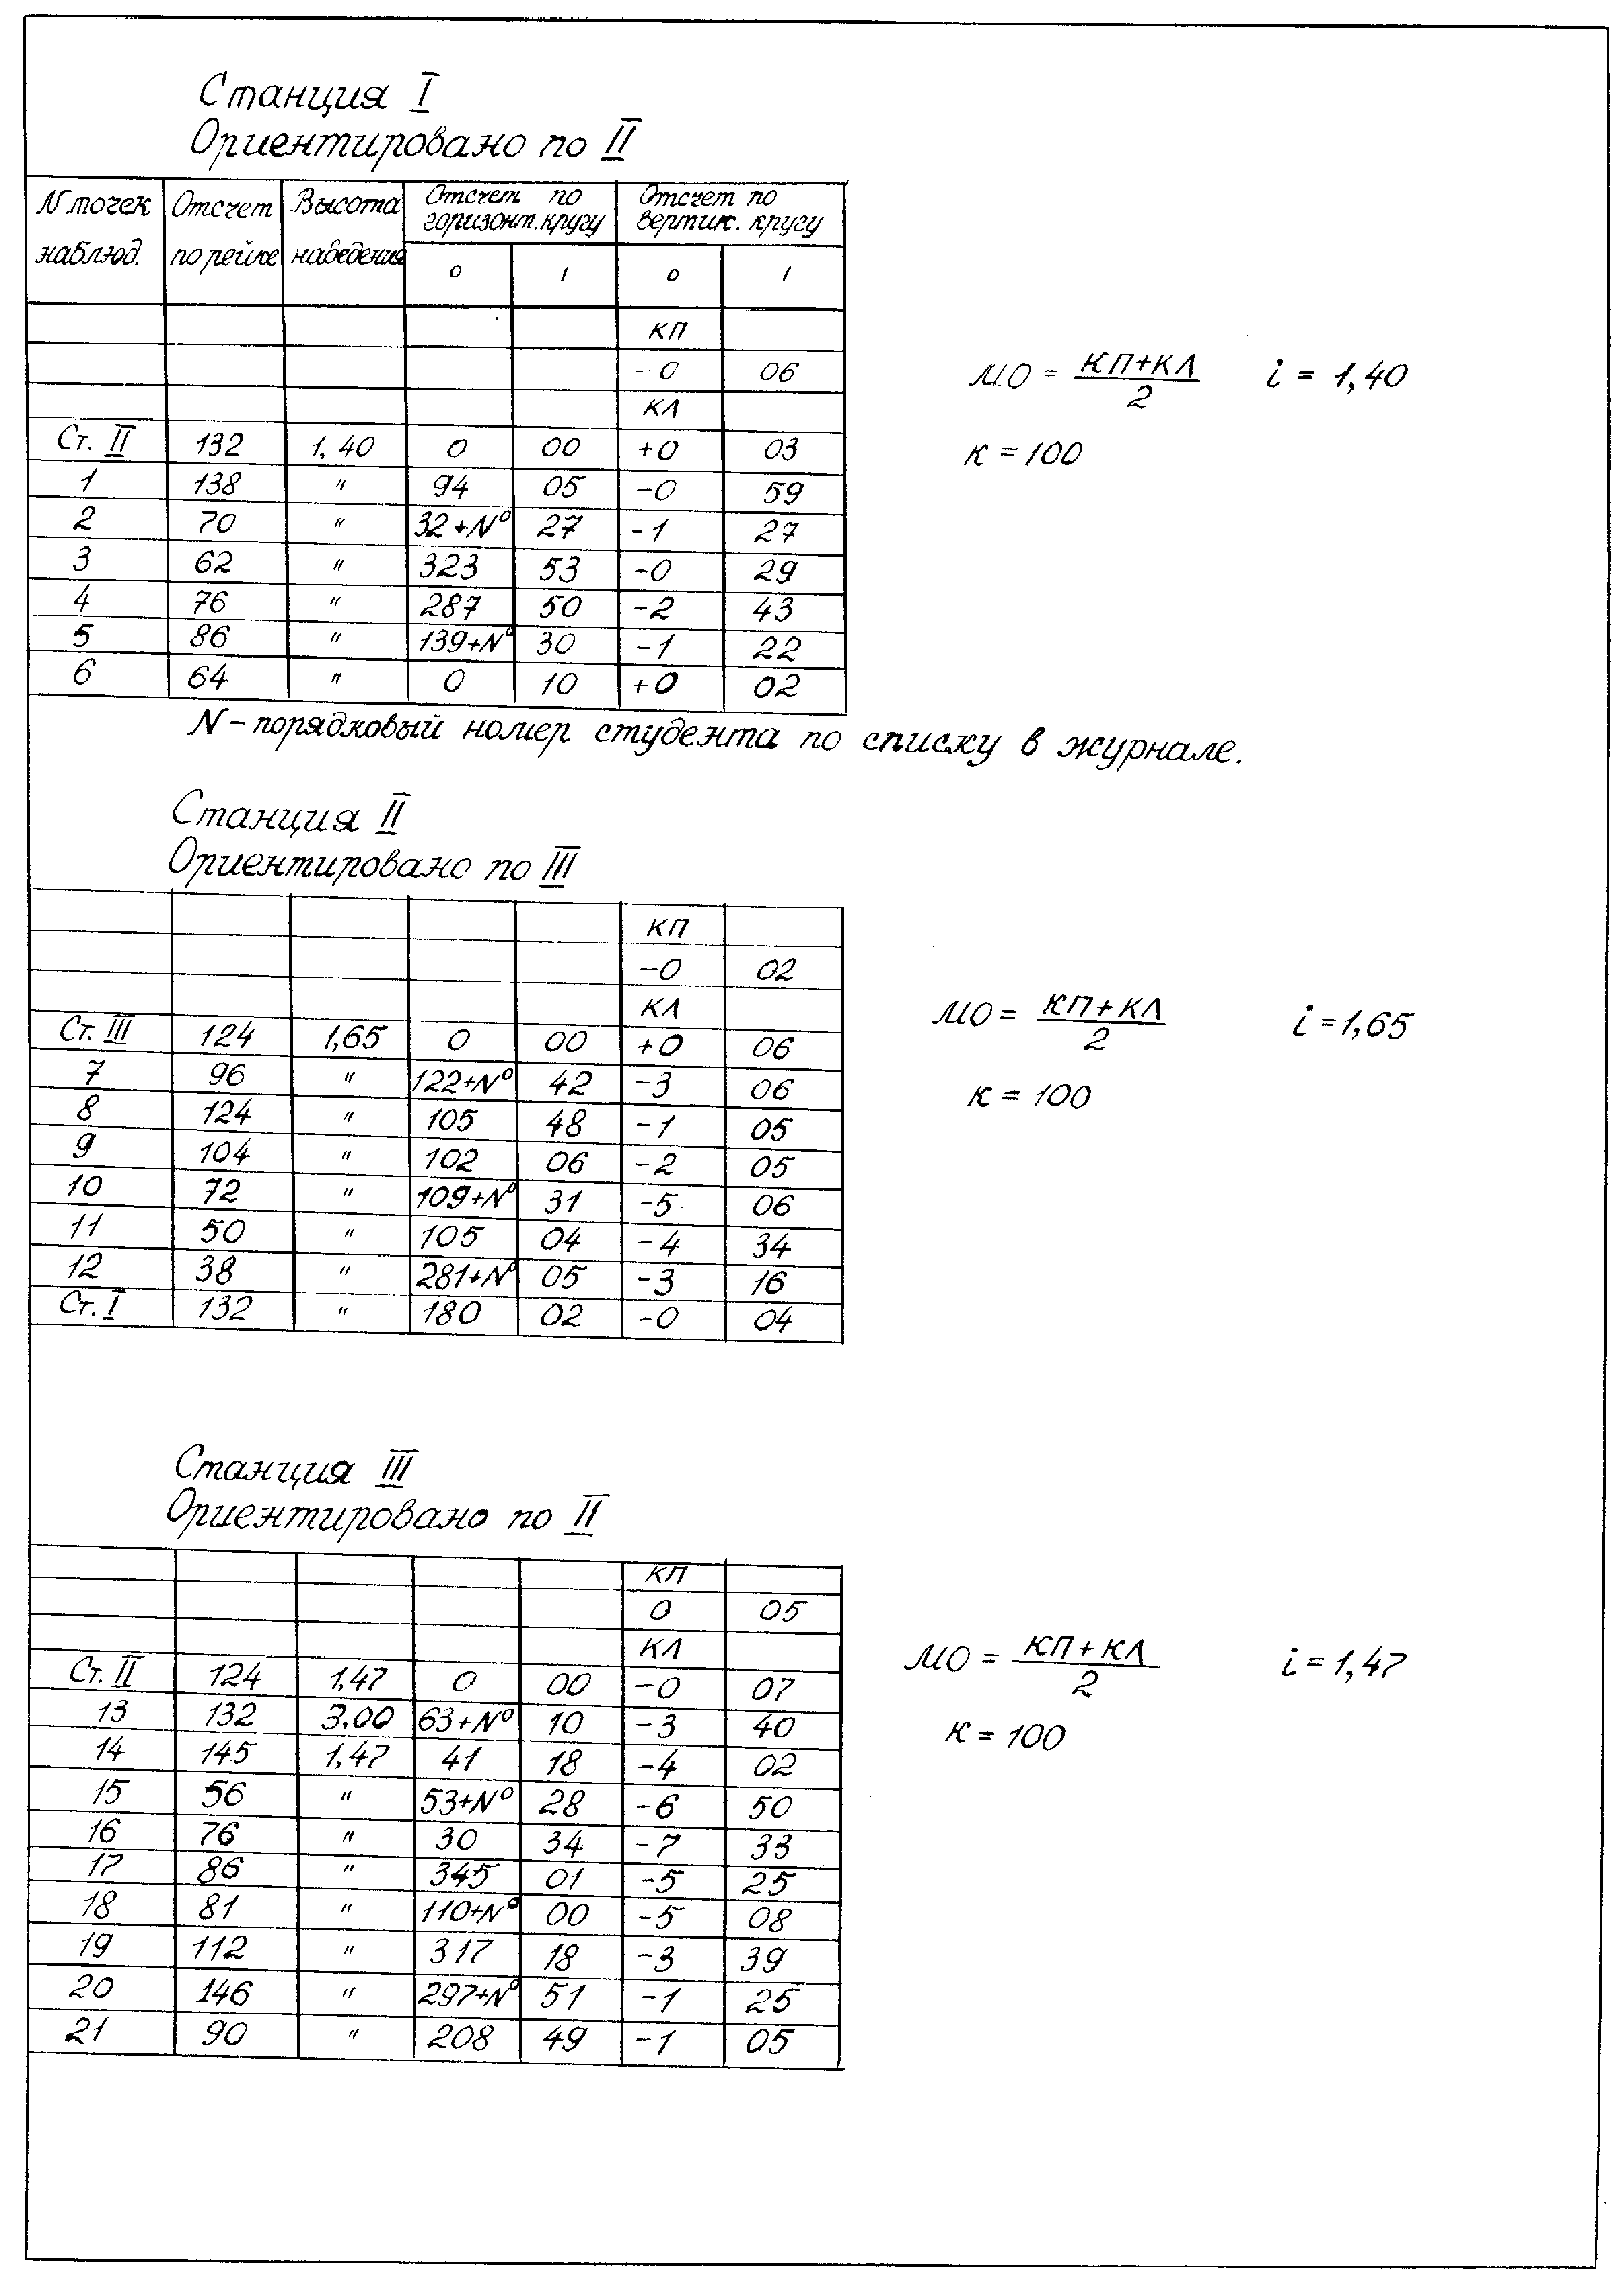 Станция I
Ориентировано по II
N точек наблюд. | Отсчет по рейке | Высота наведения | Отсчет по горизонт. кругу | Отсчет по вертик. кругу
0 | ı | 0 | ı
КП
-0 | 06
КЛ
Ст. II | 132 | 1,40 | 0 | 00 | +0 | 03
1 | 138 | " | 94 | 05 | -0 | 59
2 | 70 | " | 32+N° | 27 | -1 | 27
3 | 62 | " | 323 | 53 | -0 | 29
4 | 76 | " | 287 | 50 | -2 | 43
5 | 86 | " | 139+N° | 30 | -1 | 22
6 | 64 | " | 0 | 10 | +0 | 02
МО = (КП+КЛ)/2 i = 1,40
к = 100
N – порядковый номер студента по списку в журнале.
Станция II
Ориентировано по III
КП
-0 | 02
КЛ
Ст. III | 124 | 1,65 | 0 | 00 | +0 | 06
7 | 96 | " | 122+N° | 42 | -3 | 06
8 | 124 | " | 105 | 48 | -1 | 05
9 | 104 | " | 102 | 06 | -2 | 05
10 | 72 | " | 109+N° | 31 | -5 | 06
11 | 50 | " | 105 | 04 | -4 | 34
12 | 38 | " | 281+N° | 05 | -3 | 16
Ст. I | 132 | " | 180 | 02 | -0 | 04
МО = (КП+КЛ)/2 i = 1,65
к = 100
Станция III
Ориентировано по II
КП
0 | 05
КЛ
Ст. II | 124 | 1,47 | 0 | 00 | -0 | 07
13 | 132 | 3.00 | 63+N° | 10 | -3 | 40
14 | 145 | 1,47 | 41 | 18 | -4 | 02
15 | 56 | " | 53+N° | 28 | -6 | 50
16 | 76 | " | 30 | 34 | -7 | 33
17 | 86 | " | 345 | 01 | -5 | 25
18 | 81 | " | 110+N° | 00 | -5 | 08
19 | 112 | " | 317 | 18 | -3 | 39
20 | 146 | " | 297+N° | 51 | -1 | 25
21 | 90 | " | 208 | 49 | -1 | 05
МО = (КП+КЛ)/2 i = 1,47
к = 100